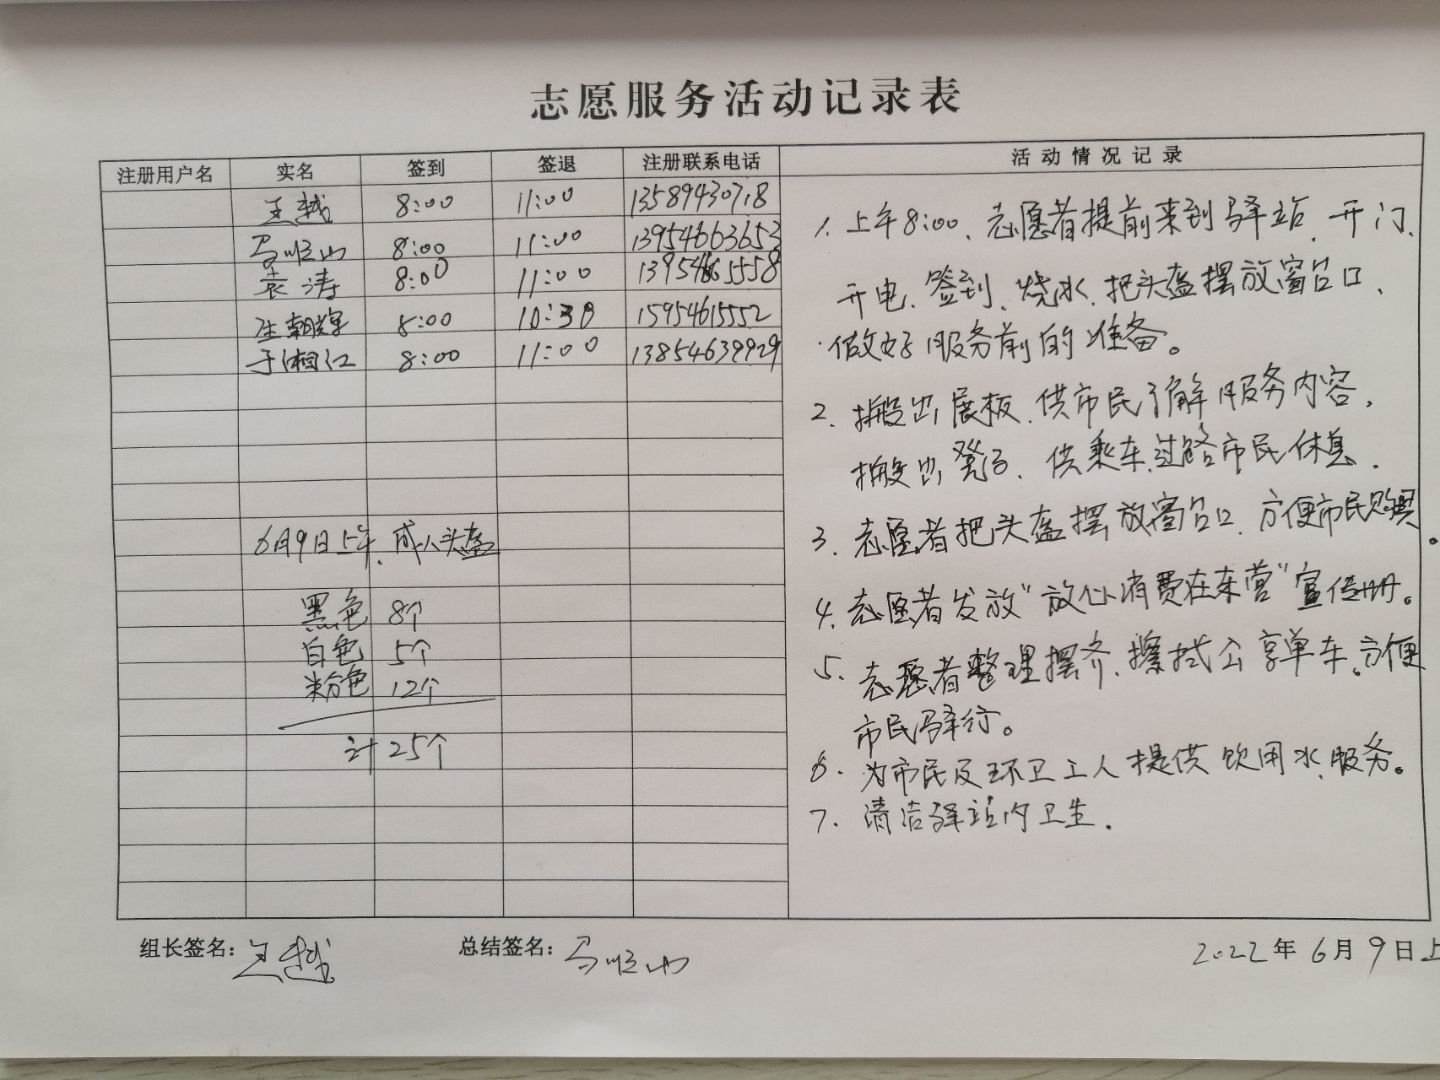 志愿服务活动记录表
注册用户名 实名 签到 签退 注册联系电话 活动情况记录
王越 8:00 11:00 13589430718
马顺山 8:00 11:00 13954663653
袁涛 8:00 11:00
生朝辉 8:00 10:30 15954615552
于湘红 8:00 11:00 13854639929
6月9日上午、成人头盔
黑色 8个
白色 5个
粉色 12个
计25个
1. 上午8:00、志愿者提前来到驿站、开门、
开电、签到、烧水、把头盔摆放窗台口、
做好服务前的准备。
2. 搬出展板、供市民了解服务内容，
搬出凳子、供乘车、过路市民休息．
3. 志愿者把头盔摆放窗台口、方便市民购买。
4. 志愿者发放"放心消费在东营"宣传册。
5. 志愿者整理摆齐、擦拭公享单车。方便
市民驿行。
6. 为市民及环卫工人提供饮用水服务。
7. 清洁驿站内卫生．
组长签名：王越 总结签名：马顺山 2022年6月9日上